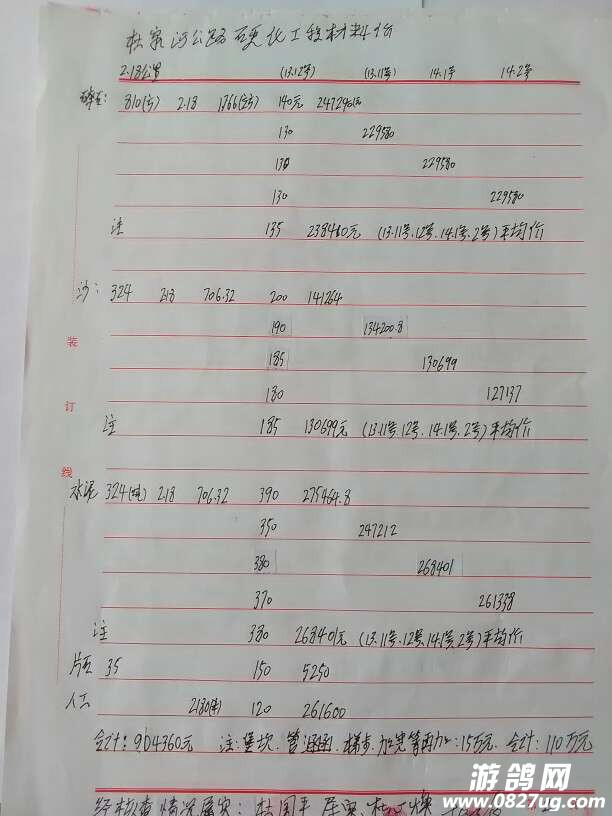 杜家河公路硬化工程材料价
2.18公里 (13.12号) (13.11号) 14.1号 14.2号
碎石: 810(方) 2.18 1766(方) 140元 247240元
130 229580
130 229580
130 229580
注 135 238410元 (13.11号、12号、14.1号、2号)平均价
沙: 324 2.18 706.32 200 141264
190 134200.8
185 130699
180 127137
注 185 130699元 (13.11号、12号、14.1号、2号)平均价
水泥 324(吨) 2.18 706.32 390 275464.8
350 247212
380 268401
370 261338
注 380 268401元 (13.11号、12号、14.1号、2号)平均价
片石 35 150 5250
人工 2180 120 261600
合计: 904360元 注: 堡坎、管涵、梯步、加宽等附加:15万元. 合计: 110万元
经核查情况属实:
装
订
线
游鸽网
www.0827ug.com